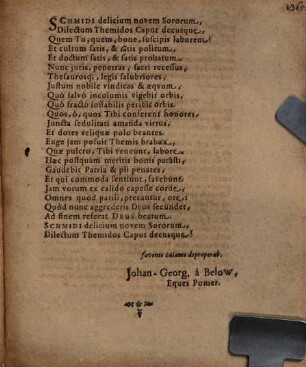 SCHMIDI delicium novem Sororum,
Dilectum Themidos Caput decusque,
Quem Tu, quem, bone, suscipis laborem?
Et cultum satis, & satis politum,
Et doctum satis, & satis probatum.
Nunc juris, penetras, sacri recessus,
Thesaurosq; legis salubriores,
Justum nobile vindicas & æqvum.
Quô salvô incolumis vigebit orbis,
Quô fractô instabilis peribit orbis.
Quos, ô, quos Tibi conferent honores,
Juncta sedulitati amanda virtus,
Et dotes reliquæ polo beantes.
Euge jam posuit Themis brabæa,
Quæ pulcro, Tibi veneunt, labore.
Hæc postquam meritis bonis parasti,
Gaudebit Patria & pii penates,
Et qui commoda sentiunt, favebunt.
Jam votum ex calido capesse corde,
Omnes quod parili, precantur, ore:
Qvod nunc aggrederis Deus secundet,
Ad finem referat DEUS beatum.
SCHMIDI delicium novem Sororum,
Dilectum Themidos Caput decusque!
favente calamo deproperab.
Johan-Georg. à Below,
Eques Pomer.